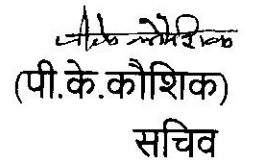 (पी.के.कौशिक)
सचिव